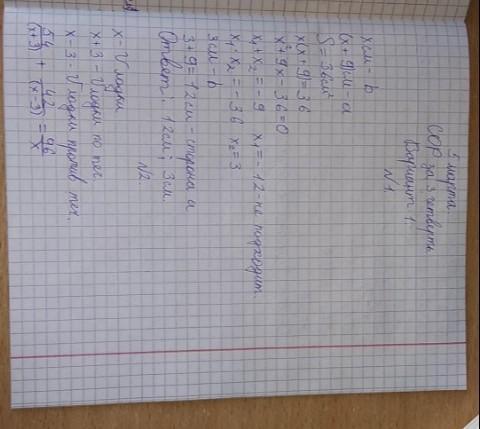 5 марта.
СОР за 3 четверть
Вариант 1.
N1.
x см - b
(x + 9) см - a
S = 36 см²
x(x + 9) = 36
x² + 9x - 36 = 0
x₁ + x₂ = -9 x₁ = -12 - не подходит
x₁ · x₂ = -36 x₂ = 3
3 см - b
3 + 9 = 12 см - сторона a
Ответ: 12 см; 3 см.
N2.
x - V лодки
x + 3 - V лодки по теч.
x - 3 - V лодки против теч.
54/(x+3) + 42/(x-3) = 96/x